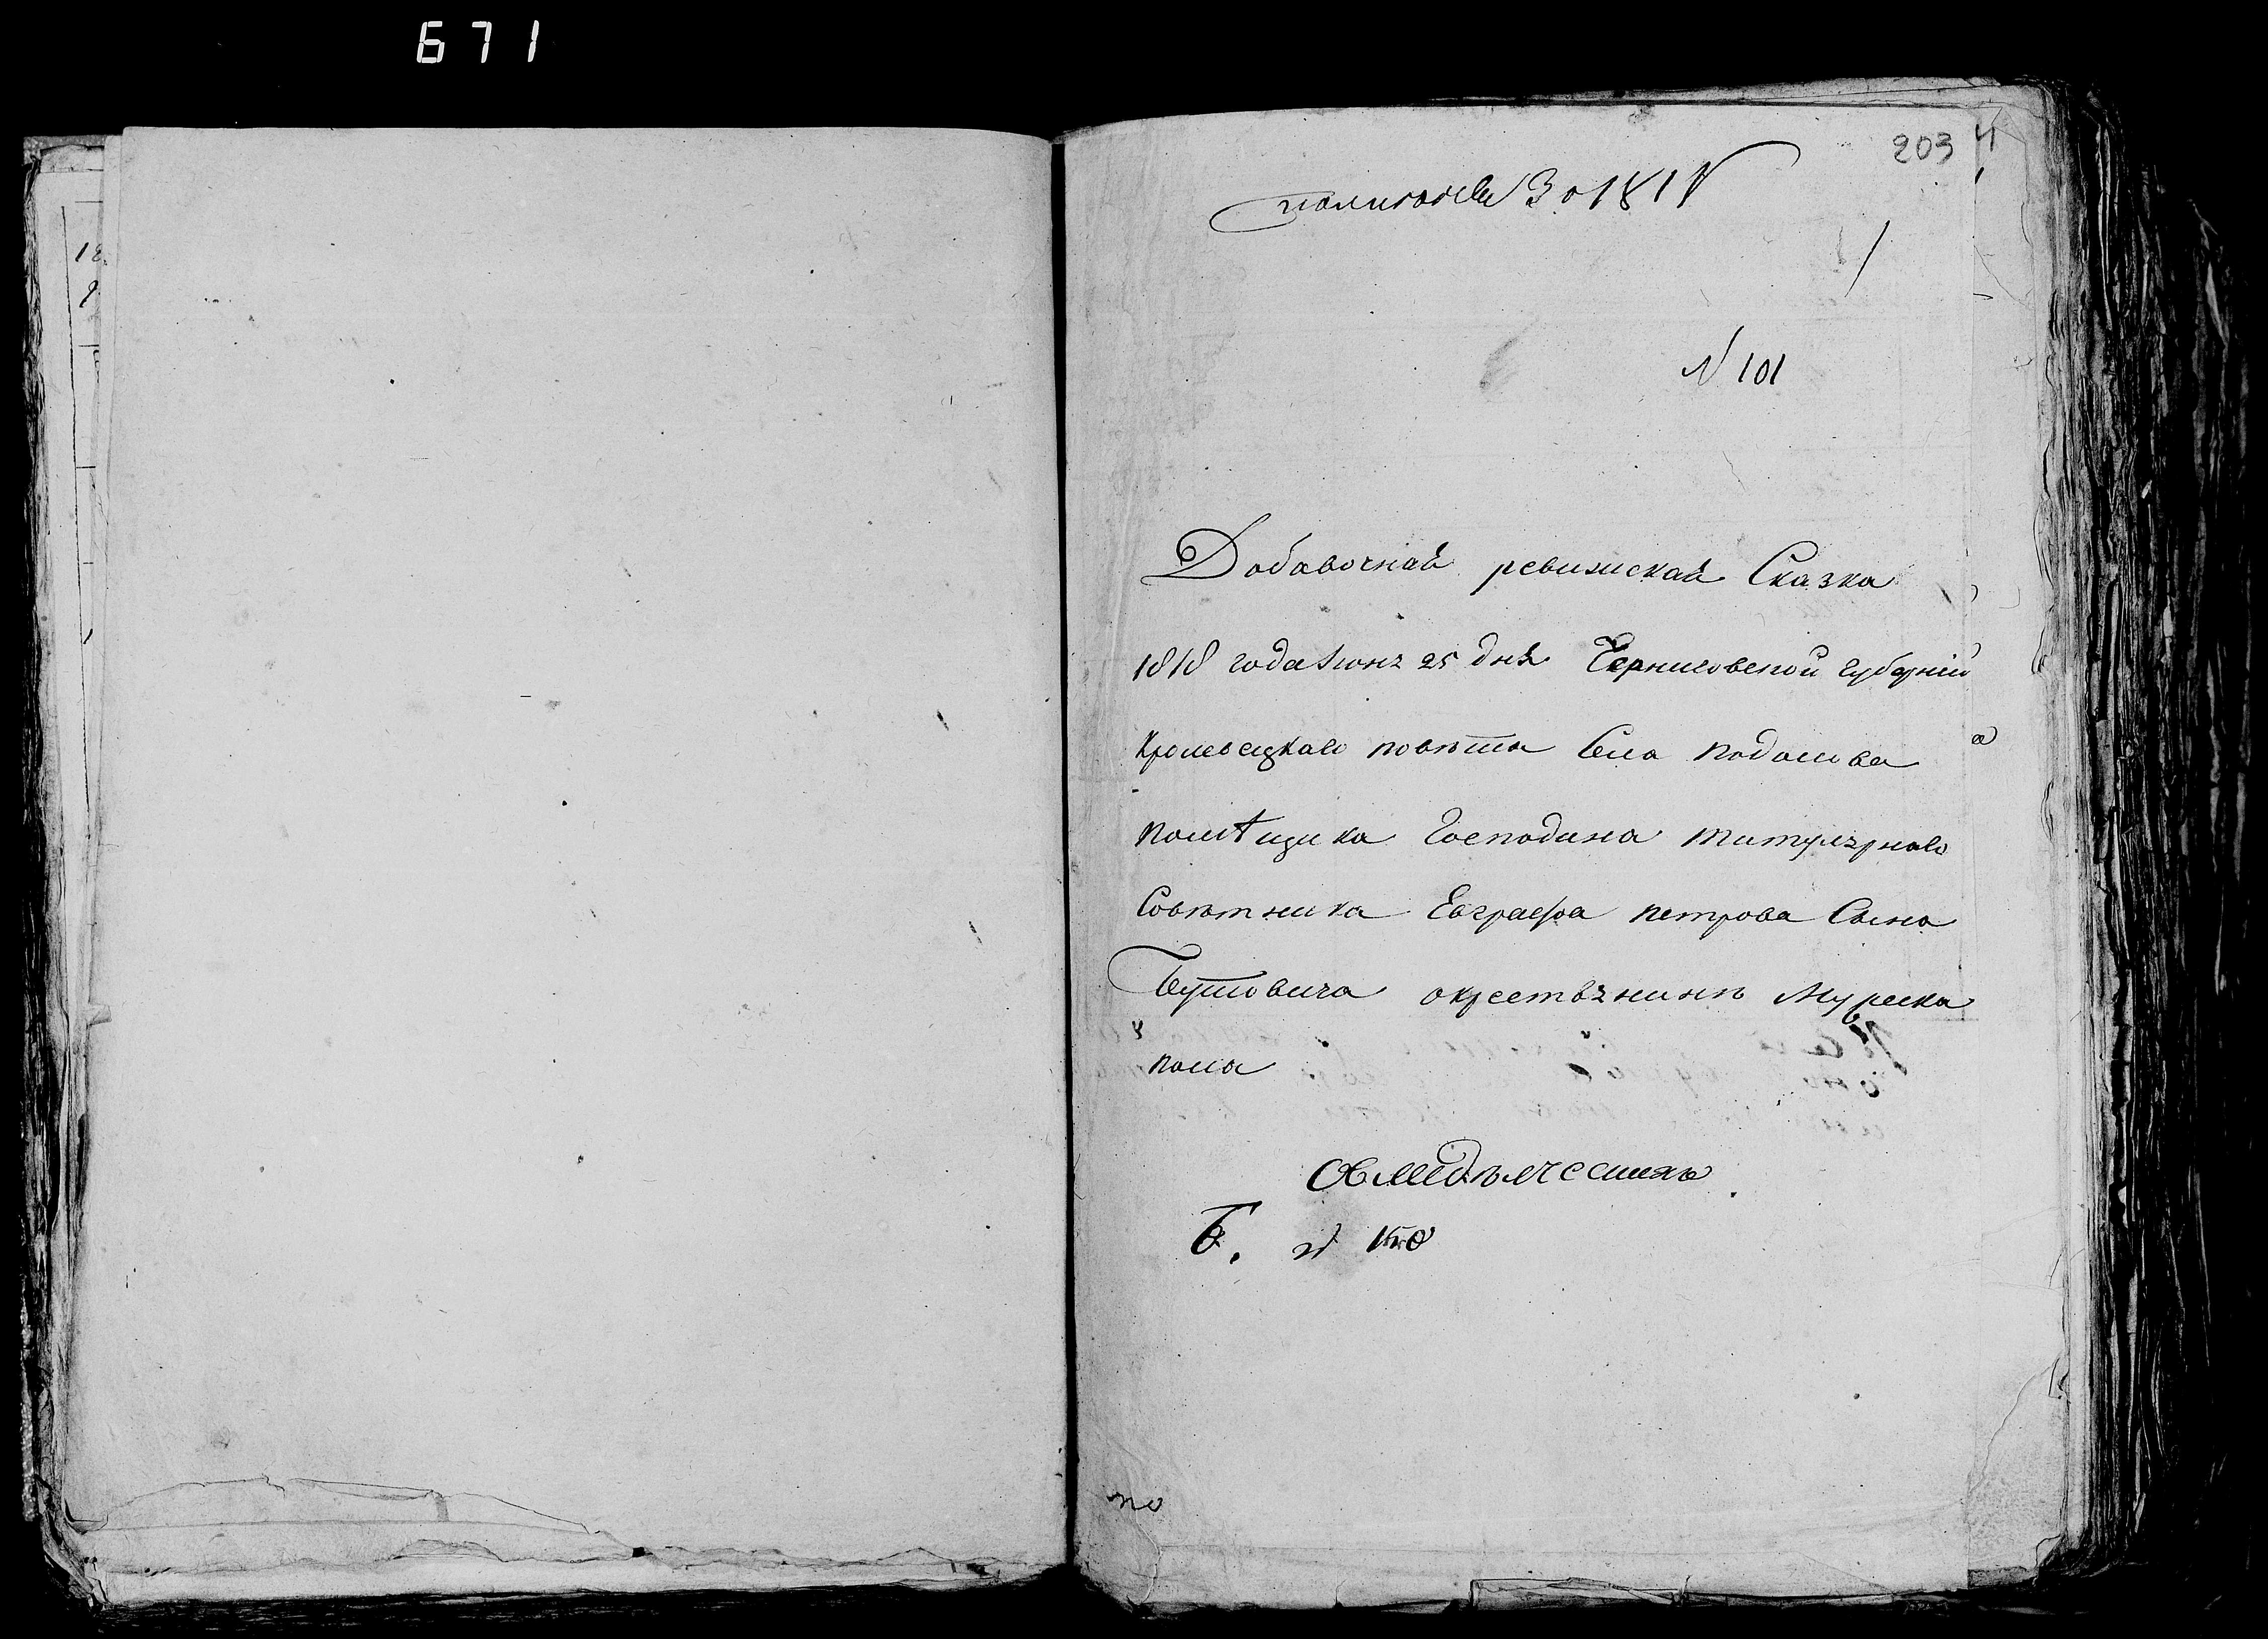 671
203
N 101
Добавочная ревизская Сказка
1818 года Июня 25 дня Черниговской губернии
Кролевецкаго повѣта Села Подолова
помѣщика Господина титулярнаго
Совѣтника Евграфа петрова Сына
Бутовича окрестьянинѣ Мужеска
пола
Б. 
по